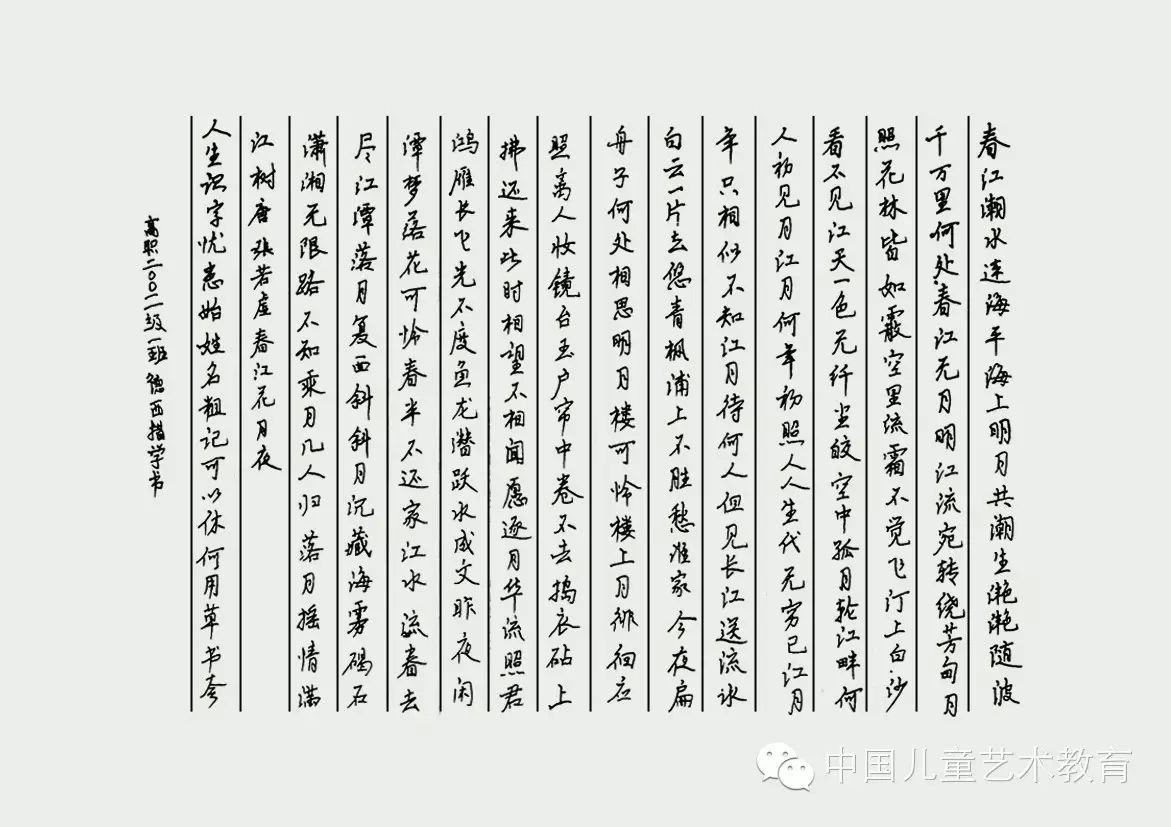 春江潮水连海平海上明月共潮生滟滟随波
千万里何处春江无月明江流宛转绕芳甸月
照花林皆如霰空里流霜不觉飞汀上白沙
看不见江天一色无纤尘皎空中孤月轮江畔何
人初见月江月何年初照人人生代无穷已江月
年只相似不知江月待何人但见长江送流水
白云一片去悠青枫浦上不胜愁谁家今夜扁
舟子何处相思明月楼可怜楼上月徘徊应
照离人妆镜台玉户帘中卷不去捣衣砧上
拂还来此时相望不相闻愿逐月华流照君
鸿雁长飞光不度鱼龙潜跃水成文昨夜闲
潭梦落花可怜春半不还家江水流春去
尽江潭落月复西斜斜月沉藏海雾碣石
潇湘无限路不知乘月几人归落月摇情满
江树唐张若虚春江花月夜
人生识字忧患始姓名粗记可以休何用草书夸
高职二〇〇二级一班德西措学书
中国儿童艺术教育